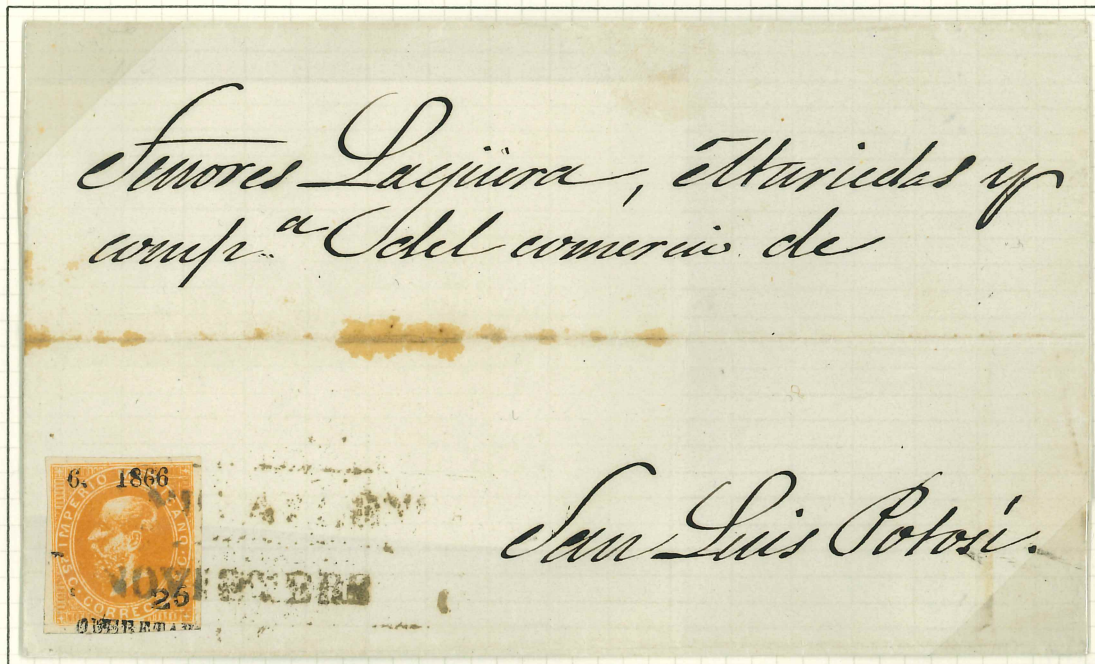 Señores Lagüera, Muriedas y
comp.ª del comercio de
San Luis Potosí.
6. 1866
IMPERIO MEXICANO
25 C. CORREOS
NOVIEMBRE
26